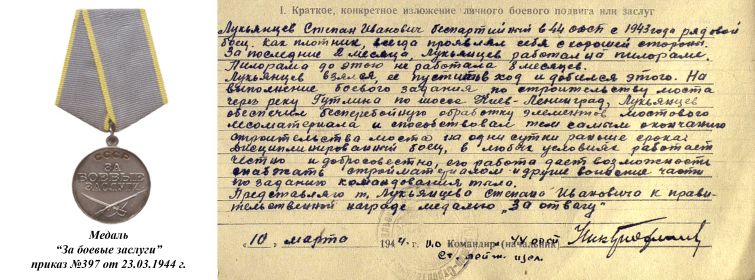 СССР
ЗА
БОЕВЫЕ
ЗАСЛУГИ
Медаль
“За боевые заслуги”
приказ №397 от 23.03.1944 г.
I. Краткое, конкретное изложение личного боевого подвига или заслуг
Лукьянцев Степан Иванович беспартийный в 44 с 1943 года рядовой
боец. Как плотник, всегда проявлял себя с хорошей стороны.
За последние 2 месяца Лукьянцев работал на пилораме.
Пилорама до этого не работала 8 месяцев.
Лукьянцев взялся ее пустить в ход и добился этого. На
выполнение боевого задания по строительству моста
через реку по шоссе Киев-Ленинград, Лукьянцев
обеспечил бесперебойную обработку элементов мостового
лесоматериала и способствовал тем самым окончанию
строительства моста на одни сутки раньше срока.
Дисциплинированный боец, в любых условиях работает
честно и добросовестно, его работа дает возможность
снабжать стройматериалом и другие воинские части
по заданию командования тыла.
Представляю т. Лукьянцева Степана Ивановича к прави-
тельственной награде медалью „За отвагу“
„10“ марта 1944 г. и.о Командир (начальник) 44
Ст.